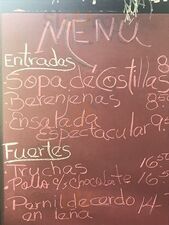 MENU
Entradas 8
Sopa de Costillas
• Berenjenas 8.50
• Ensalada
Espectacular 9.
Fuertes
• Truchas 16.50
• Pollo y chocolate 16.5
• Pernil de cerdo 14
en leña